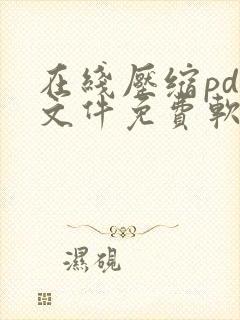 在綫壓縮pd
文件免費軟
濕硯